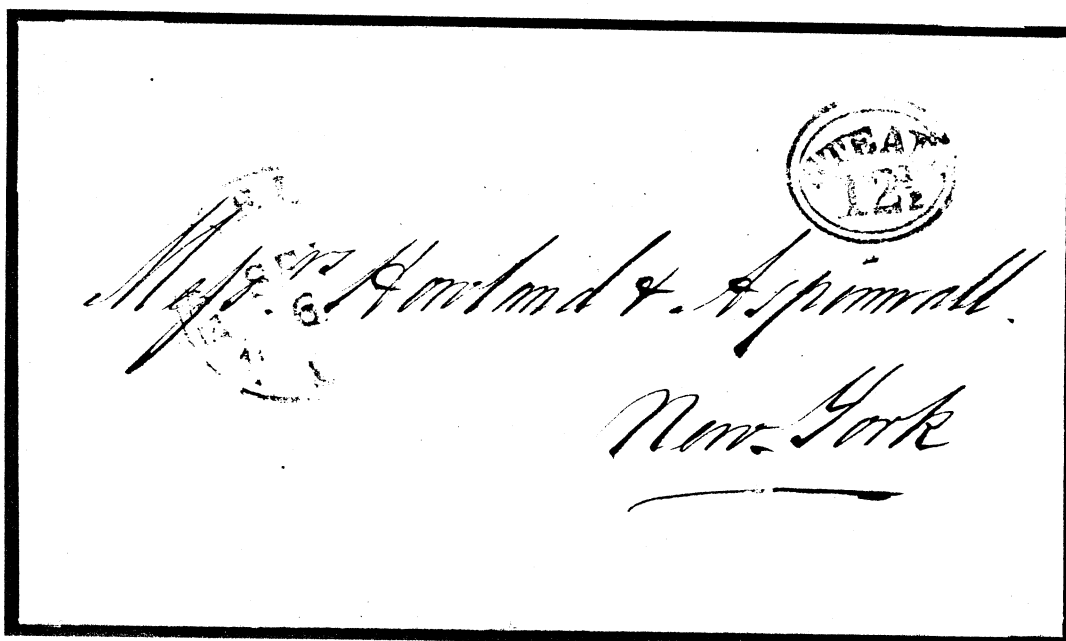 STEAM
12½
Messrs. Howland & Aspinwall.
New-York